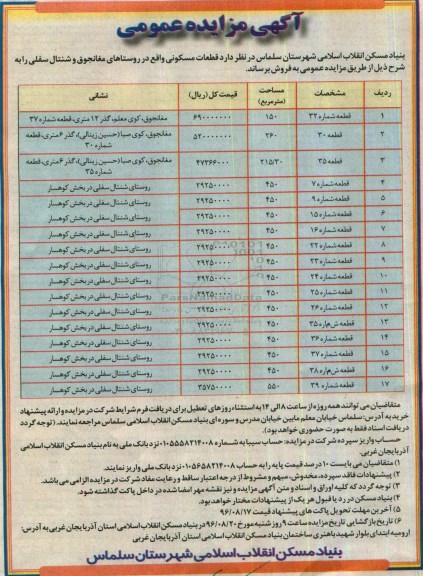 آگهی مزایده عمومی
بنیاد مسکن انقلاب اسلامی شهرستان سلماس در نظر دارد قطعات مسکونی واقع در روستاهای مغانجوق و شنتال سفلی را به
شرح ذیل از طریق مزایده عمومی به فروش برساند.
ردیف مشخصات مساحت (مترمربع) قیمت کل (ریال) نشانی
۱ قطعه شماره ۳۲ ۱۵۰ ۶۹۰۰۰۰۰۰ مغانجوق، کوی معلم، گذر ۱۲ متری، قطعه شماره ۳۷
۲ قطعه ۳۰ ۲۶۰ ۵۲۰۰۰۰۰۰ مغانجوق، کوی صبا (حسین زینالی)، گذر ۶ متری، قطعه
شماره ۳۰
۳ قطعه ۳۵ ۲۱۵/۳۰ ۴۷۳۶۶۰۰۰ مغانجوق، کوی صبا (حسین زینالی)، گذر ۶ متری، قطعه
شماره ۳۵
۴ قطعه شماره ۷ ۴۵۰ ۲۹۲۵۰۰۰۰ روستای شنتال سفلی در بخش کوهسار
۵ قطعه شماره ۹ ۴۵۰ ۲۹۲۵۰۰۰۰ روستای شنتال سفلی در بخش کوهسار
۶ قطعه شماره ۱۵ ۴۵۰ ۲۹۲۵۰۰۰۰ روستای شنتال سفلی در بخش کوهسار
۷ قطعه شماره ۱۶ ۴۵۰ ۲۹۲۵۰۰۰۰ روستای شنتال سفلی در بخش کوهسار
۸ قطعه شماره ۲۲ ۴۵۰ ۲۹۲۵۰۰۰۰ روستای شنتال سفلی در بخش کوهسار
۹ قطعه شماره ۲۳ ۴۵۰ ۲۹۲۵۰۰۰۰ روستای شنتال سفلی در بخش کوهسار
۱۰ قطعه شماره ۲۴ ۴۵۰ ۲۹۲۵۰۰۰۰ روستای شنتال سفلی در بخش کوهسار
۱۱ قطعه شماره ۲۵ ۴۵۰ ۲۹۲۵۰۰۰۰ روستای شنتال سفلی در بخش کوهسار
۱۲ قطعه شماره ۲۶ ۴۵۰ ۲۹۲۵۰۰۰۰ روستای شنتال سفلی در بخش کوهسار
۱۳ قطعه شماره ۳۵ ۴۵۰ ۲۹۲۵۰۰۰۰ روستای شنتال سفلی در بخش کوهسار
۱۴ قطعه شماره ۳۶ ۴۵۰ ۲۹۲۵۰۰۰۰ روستای شنتال سفلی در بخش کوهسار
۱۵ قطعه شماره ۳۷ ۴۵۰ ۲۹۲۵۰۰۰۰ روستای شنتال سفلی در بخش کوهسار
۱۶ قطعه شماره ۳۸ ۴۵۰ ۲۹۲۵۰۰۰۰ روستای شنتال سفلی در بخش کوهسار
۱۷ قطعه شماره ۳۹ ۵۵۰ ۳۵۷۵۰۰۰۰ روستای شنتال سفلی در بخش کوهسار
متقاضیان می توانند همه روزه از ساعت ۸ الی ۱۴ به استثناء روزهای تعطیل برای دریافت فرم شرایط شرکت در مزایده و ارائه پیشنهاد
خرید به آدرس: سلماس خیابان معلم مابین خیابان مدرس و سوره ای بنیاد مسکن انقلاب اسلامی سلماس مراجعه نمایند. (توجه گردد
دریافت اسناد فقط به صورت حضوری خواهد بود).
حساب واریز سپرده شرکت در مزایده: حساب سیبا به شماره ۰۱۰۵۵۵۸۲۱۴۰۰۸ نزد بانک ملی به نام بنیاد مسکن انقلاب اسلامی
آذربایجان غربی.
۱) متقاضیان می بایست ۱۰ درصد قیمت پایه را به حساب ۰۱۰۵۶۵۸۲۱۴۰۰۸ نزد بانک ملی واریز نمایند.
۲) پیشنهادات فاقد سپرده، مخدوش، مبهم و مشروط از درجه اعتبار ساقط و رعایت مفاد شرکت در مزایده الزامی می باشد.
۳) توجه گردد که کلیه اوراق و اسناد و متن آگهی مزایده و نیز نقشه مهر امضا شده در داخل پاکت گذاشته شود.
۴) بنیاد مسکن در رد یا قبول هر یک از پیشنهادات مختار خواهد بود.
۵) آخرین مهلت تحویل پاکت های پیشنهاد قیمت ۹۶/۰۸/۱۷
۶) تاریخ بازگشایی تاریخ مزایده ساعت ۹ روز شنبه مورخ ۹۶/۰۸/۲۰ در بنیاد مسکن انقلاب اسلامی استان آذربایجان غربی به آدرس:
ارومیه ابتدای بلوار شهید باهنری ساختمان بنیاد مسکن انقلاب اسلامی استان آذربایجان غربی
بنیاد مسکن انقلاب اسلامی شهرستان سلماس